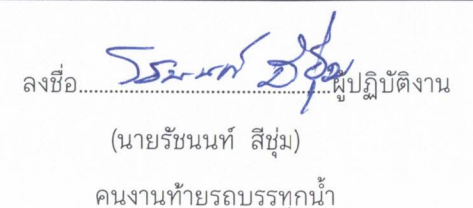 ลงชื่อ....................................................ผู้ปฏิบัติงาน
(นายรัชนนท์ สีชุ่ม)
คนงานท้ายรถบรรทุกน้ำ